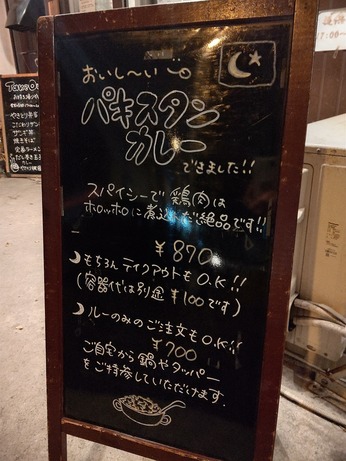 おいし〜い
パキスタン
カレー
できました!!
スパイシーで 鶏肉は
ホロッホロに煮込んだ絶品です!!
¥870
もちろん テイクアウトもO.K!!
(容器代は別途 ¥100です)
ルーのみのご注文もO.K!!
¥700
ご自宅から鍋やタッパー
をご持参していただけます.